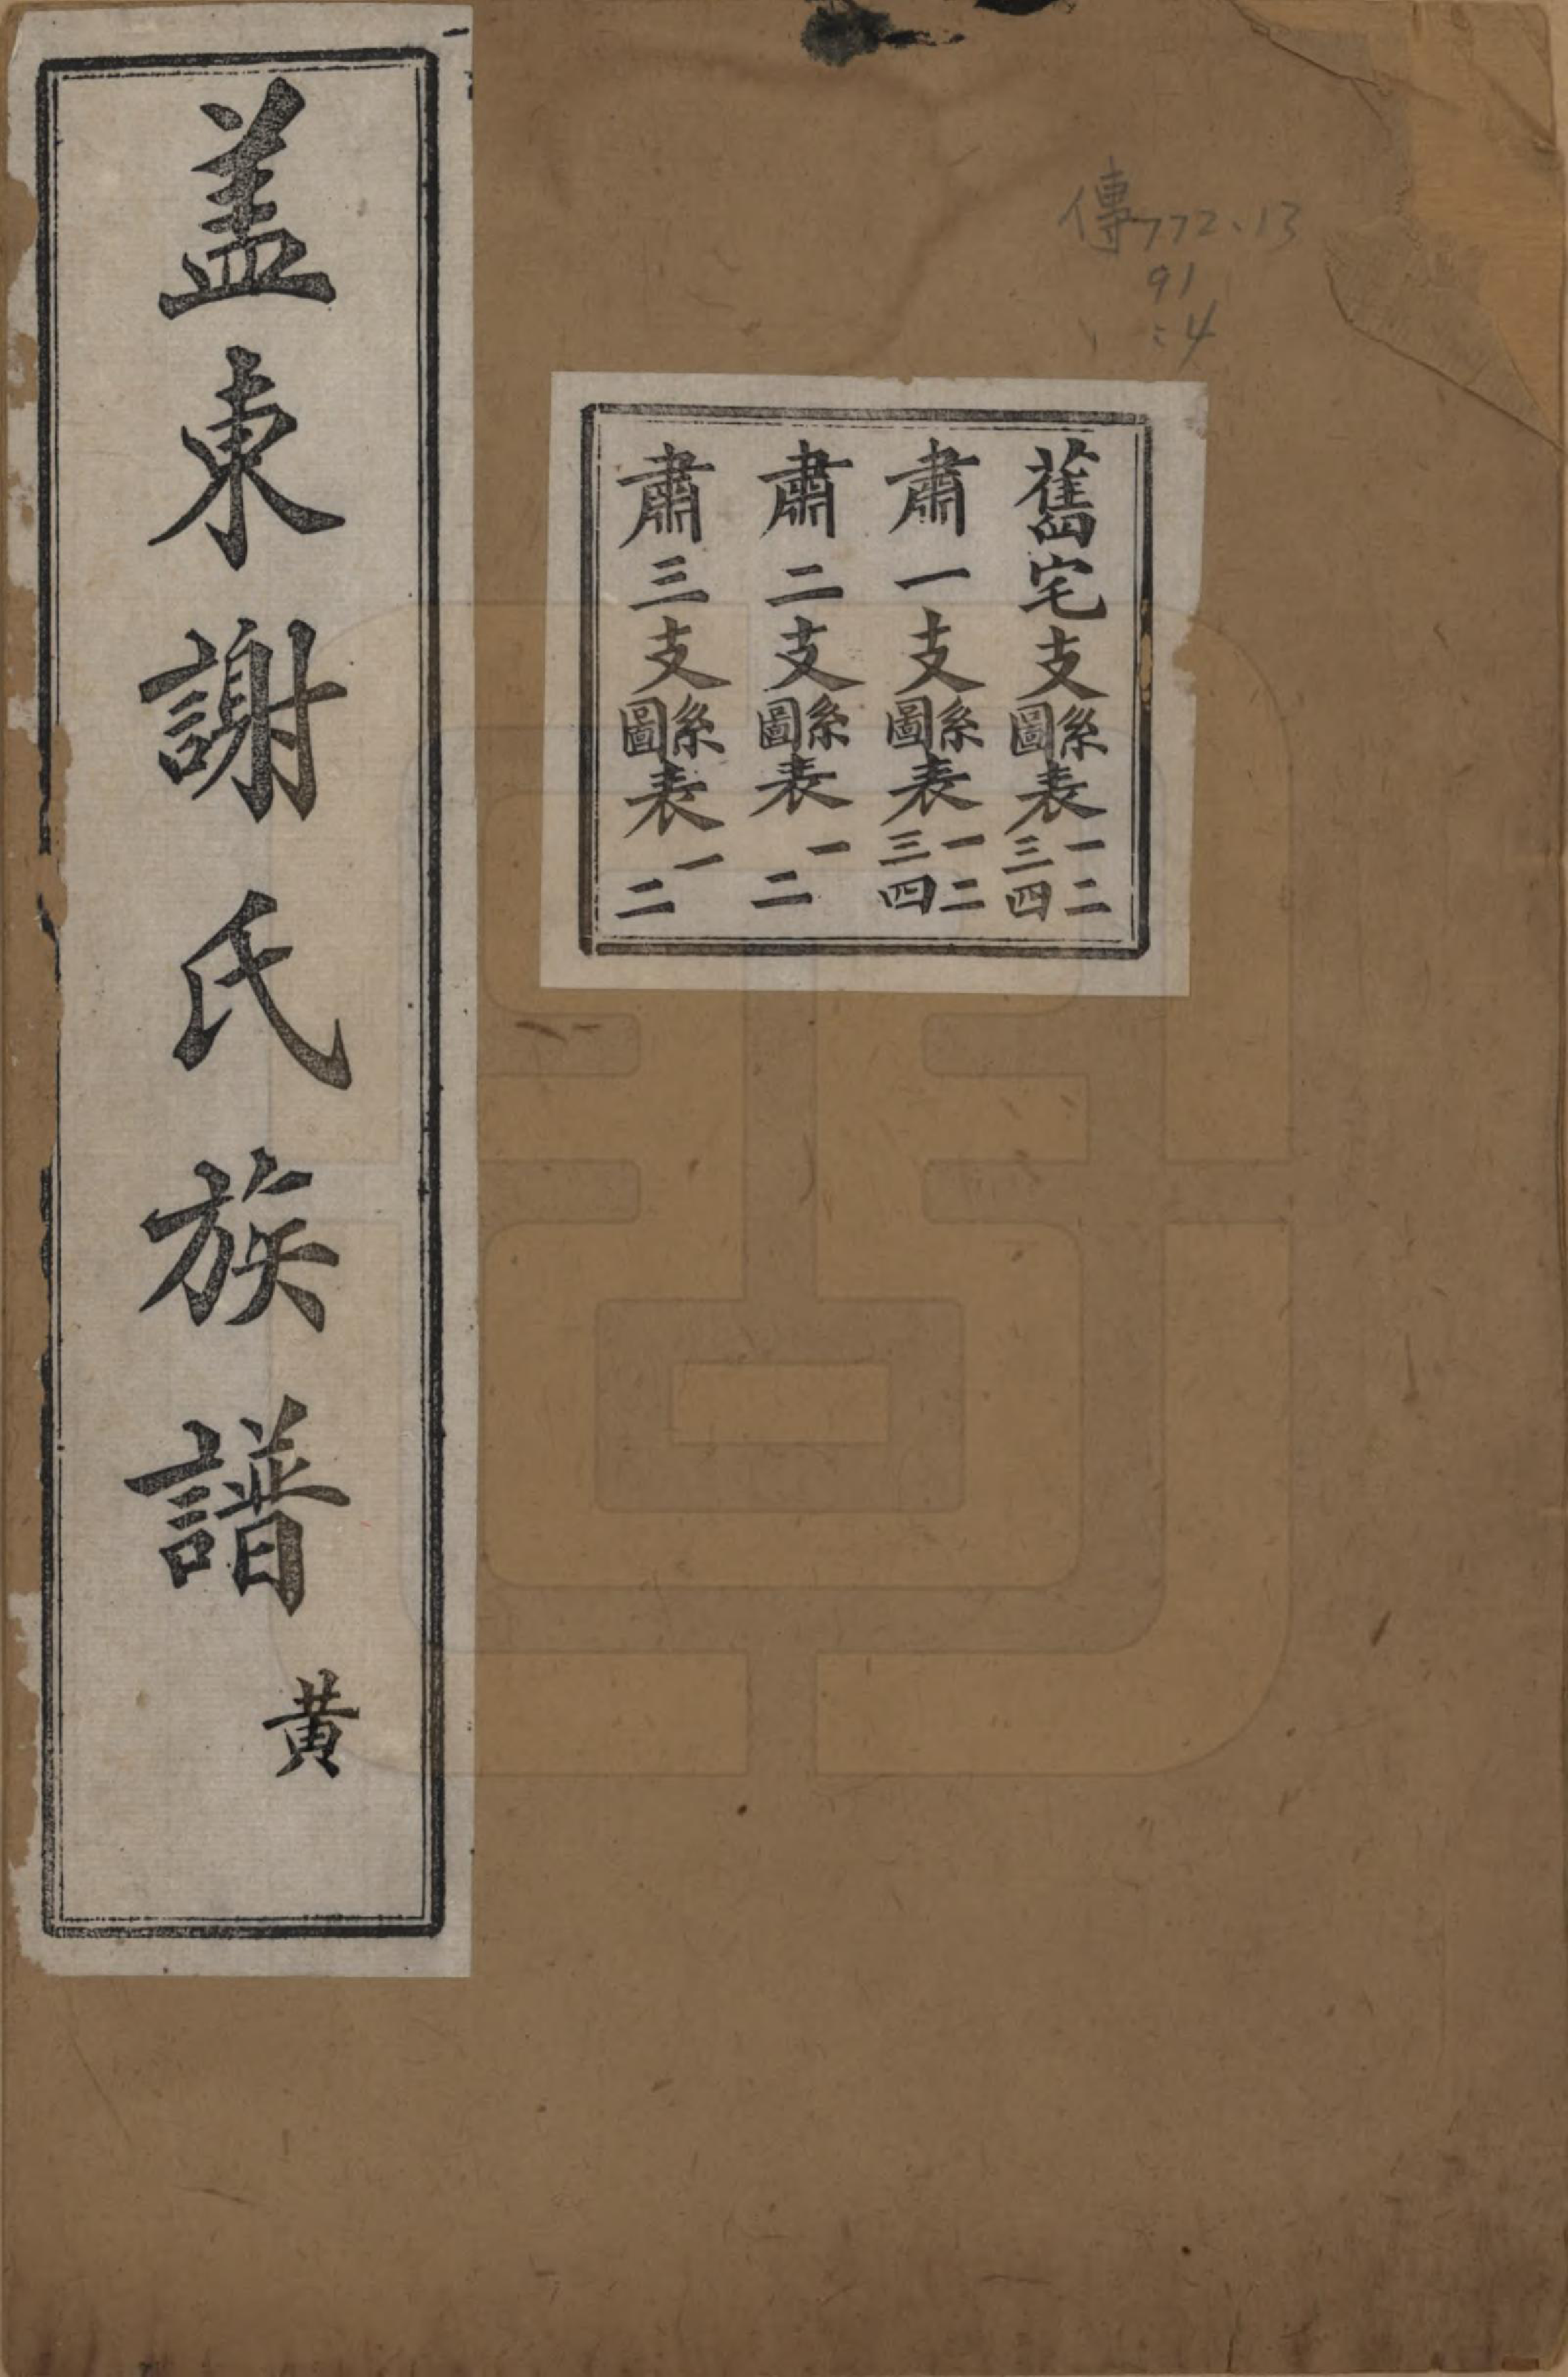 傳772.13
91
:4
舊宅支系圖表一二三四
肅一支系圖表一二三四
肅二支系圖表一二
肅三支系圖表一二
盖東謝氏族譜 黄